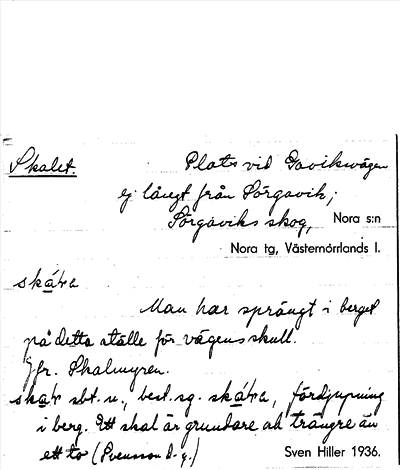 Skalet.
Plats vid Gaviksvägen
ej långt från Sörgavik,
Sörgaviks skog,
Nora s:n
Nora tg, Västernorrlands l.
Man har sprängt i berget
på detta ställe för vägens skull.
Jfr. Skalmyren.
sbt. n., best. sg. fördjupning
i berg. Ett skal är grundare och trängre än
ett to (Svensson d.y.)
Sven Hiller 1936.